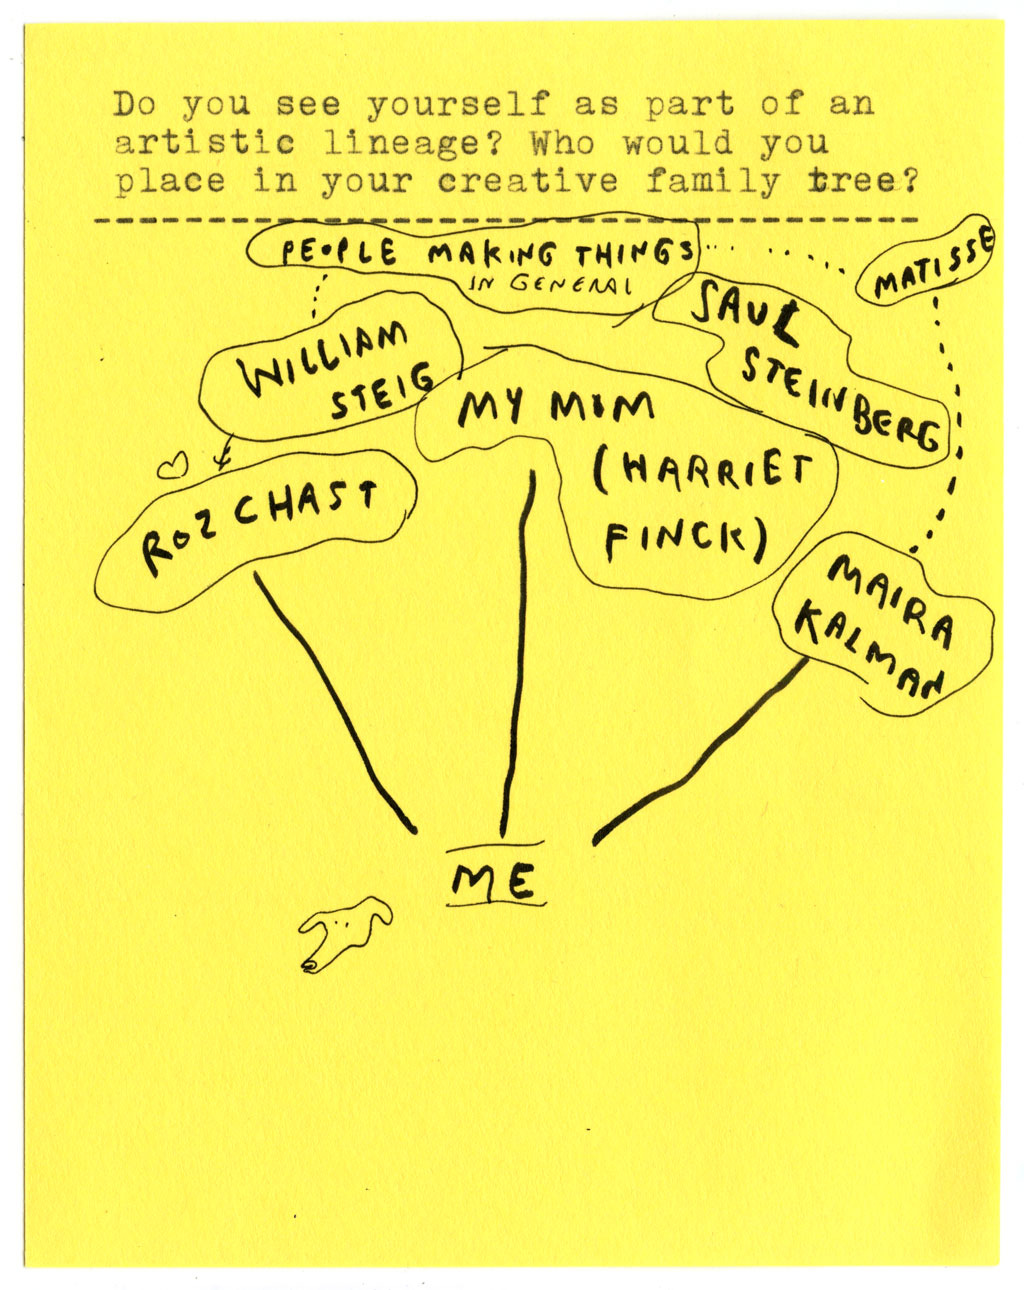 Do you see yourself as part of an
artistic lineage? Who would you
place in your creative family tree?
PEOPLE MAKING THINGS
IN GENERAL
MATISSE
SAUL
STEINBERG
WILLIAM
STEIG
MY MOM
(HARRIET
FINCK)
ROZ CHAST
MAIRA
KALMAN
ME